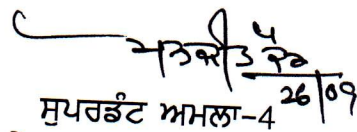 ਮਨਜੀਤ ਕੌਰ
26/09
ਸੁਪਰਡੰਟ ਅਮਲਾ-4